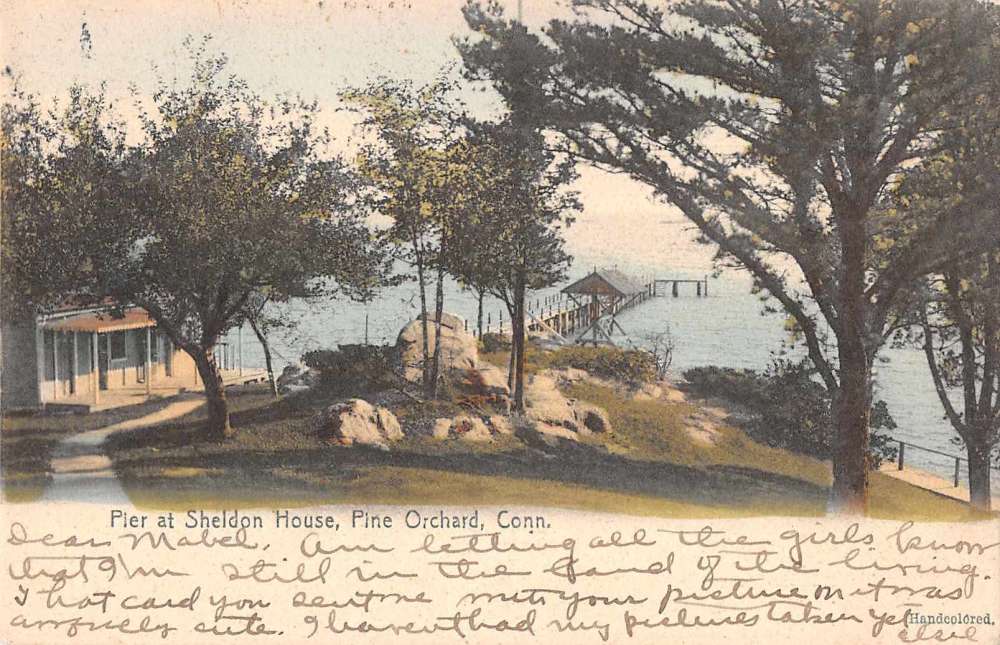 Pier at Sheldon House, Pine Orchard, Conn.
Dear Mabel. Am letting all the girls know
that I'm still in the land of the living.
That card you sent me with your picture on it was
awfully cute. I haven't had my pictures taken yet
Handcolored.
else